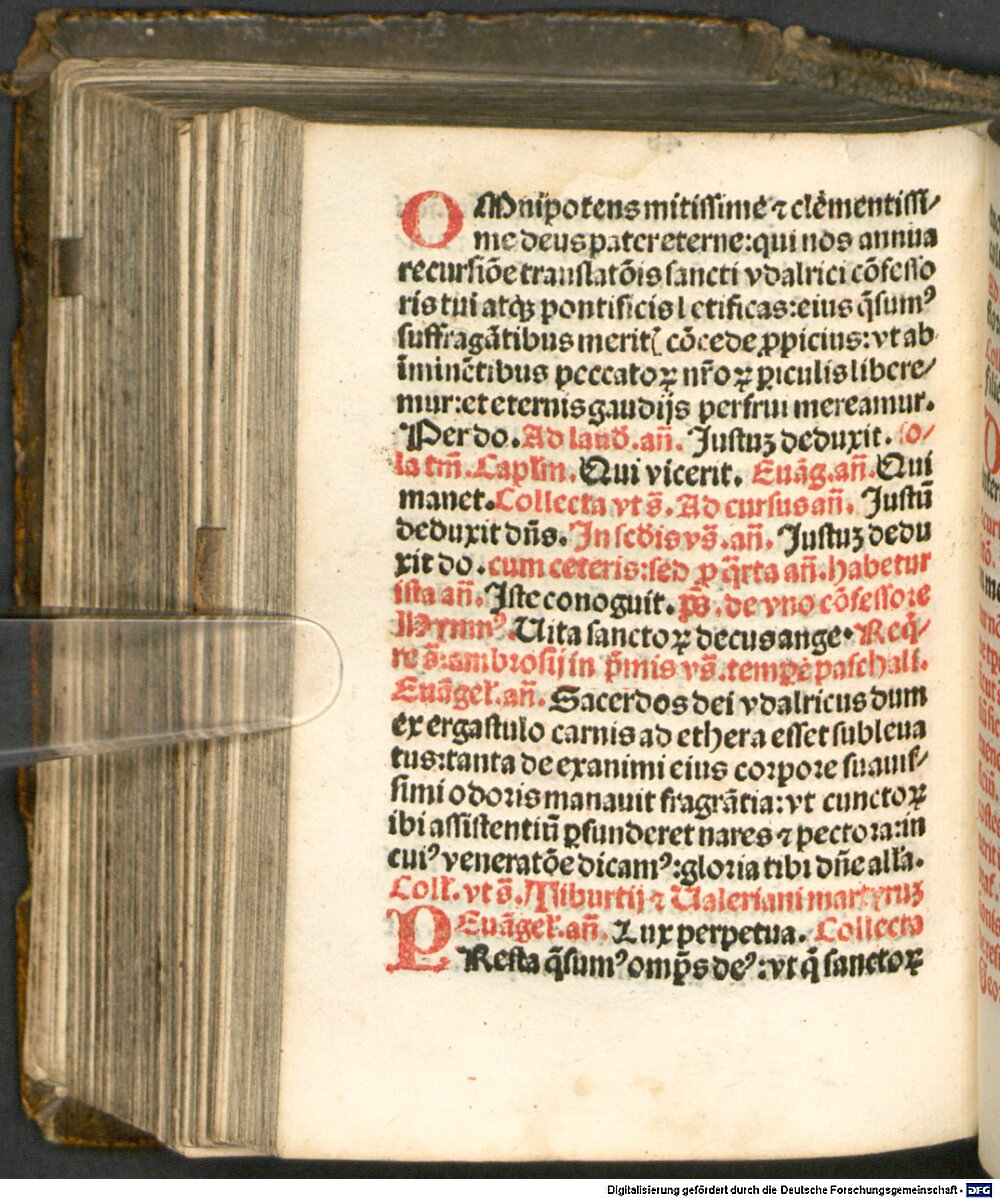 OMnīpotens mitissime ⁊ clemētissi/
me deus pater eterne: qui nos annua
recursiōe translatōis sancti vdalrici cōfesso
ris tui atqȝ pontificis letificas: eius q̄sumꝰ
suffragātibus meritꝭ cōcede ꝓpicius: vt ab
īminētibus peccatoꝝ nr̄oꝝ ꝑiculis libere/
mur: et eternis gaudijs perfrui mereamur.
Per do. Ad laud̄. an̄. Justuȝ deduxit. so/
la tm̄. Caplm̄. Qui vicerit. Euāg. an̄. Qui
manet. Collecta vt s̄. Ad cursus an̄. Justū
deduxit dn̄s. In scd̄is vs̄. an̄. Justuȝ dedu
xit do. cum ceteris: sed ꝓ q̄rta an̄. habetur
ista an̄. Iste conoguit. ps̄. de vno cōfessore
Ymnꝰ. Uita sanctoꝝ decus ange. Req̄/
re s̄. ambrosij in p̄mis vs̄. tempe paschali.
Euāgel̄. an̄. Sacerdos dei vdalricus dum
ex ergastulo carnis ad ethera esset subleua
tus: tanta de exanimi eius corpore suauis/
simi odoris manauit fragrātia: vt cunctoꝝ
ibi assistentiū ꝑfunderet nares ⁊ pectora: in
cuiꝰ veneratōe dicamꝰ: gloria tibi dn̄e alľa.
Coll̄. vt s̄. Tiburtij ⁊ Ualeriani martyruȝ
Euāgel̄. an̄. Lux perpetua. Collecta
PResta q̄sumꝰ omp̄s deꝰ: vt q̄ sanctoꝝ
Digitalisierung gefördert durch die Deutsche Forschungsgemeinschaft - DFG